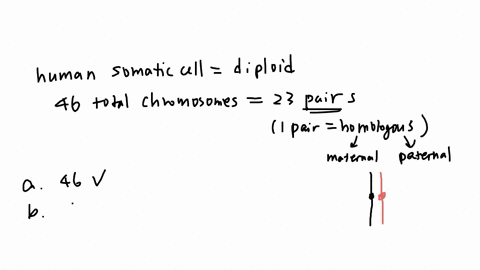 human somatic cell = diploid
46 total chromosomes = 23 pairs
(1 pair = homologous)
maternal paternal
a. 46 ✓
b.